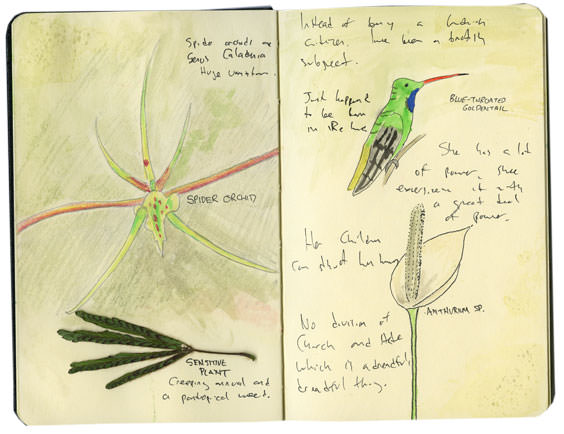 Spider orchids are
Genus Caladenia
Huge variation.
SPIDER ORCHID
SENSITIVE
PLANT
Creeping annual and
a pantropical weed.
Instead of being a British
citizen, I've been a British
subject.
Just happened
to be born
in the
BLUE-THROATED
GOLDENTAIL
She has a lot
of power, she
exercises it with
a great deal
of power.
Her Children
can
ANTHURIUM SP.
No division of
Church and State
which is a dreadful,
dreadful thing.